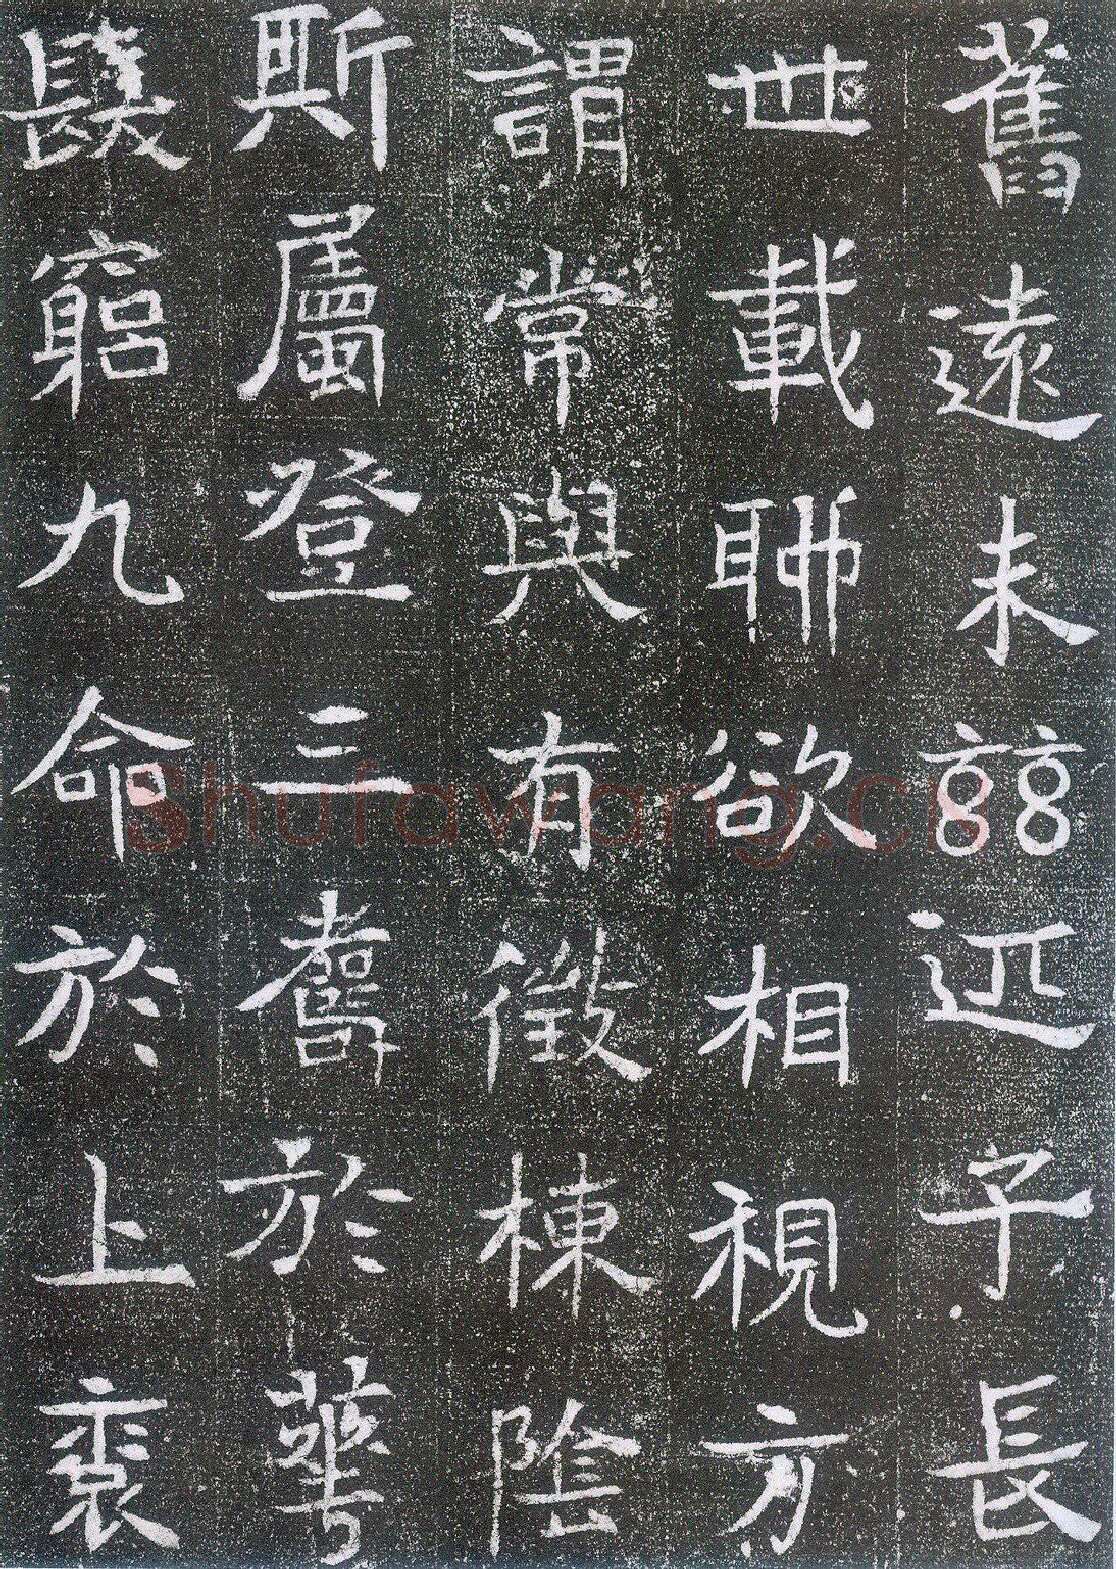 舊遠未玆匹子長
世載聊欲相視方
謂常與有徵棟陰
斯屬登三壽於華
髮窮九命於上衮
Shufawang.cn